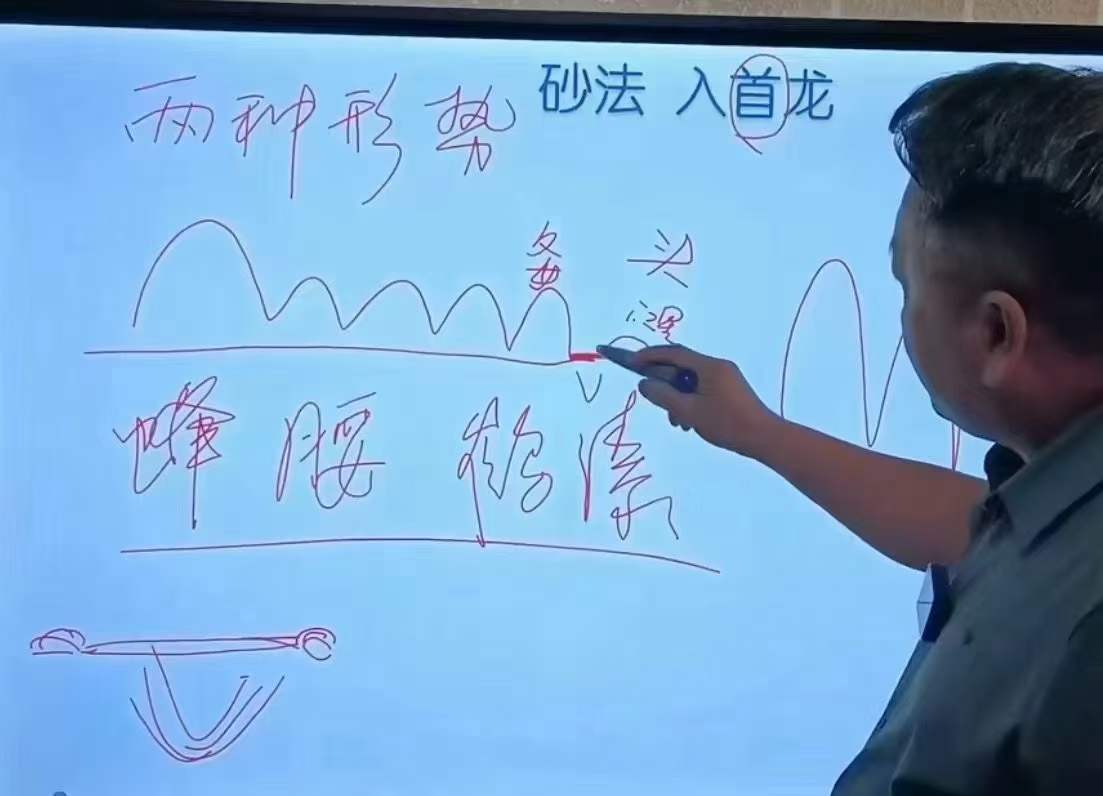 砂法 入首龙
两种形势
父母
头
蜂腰鹤膝